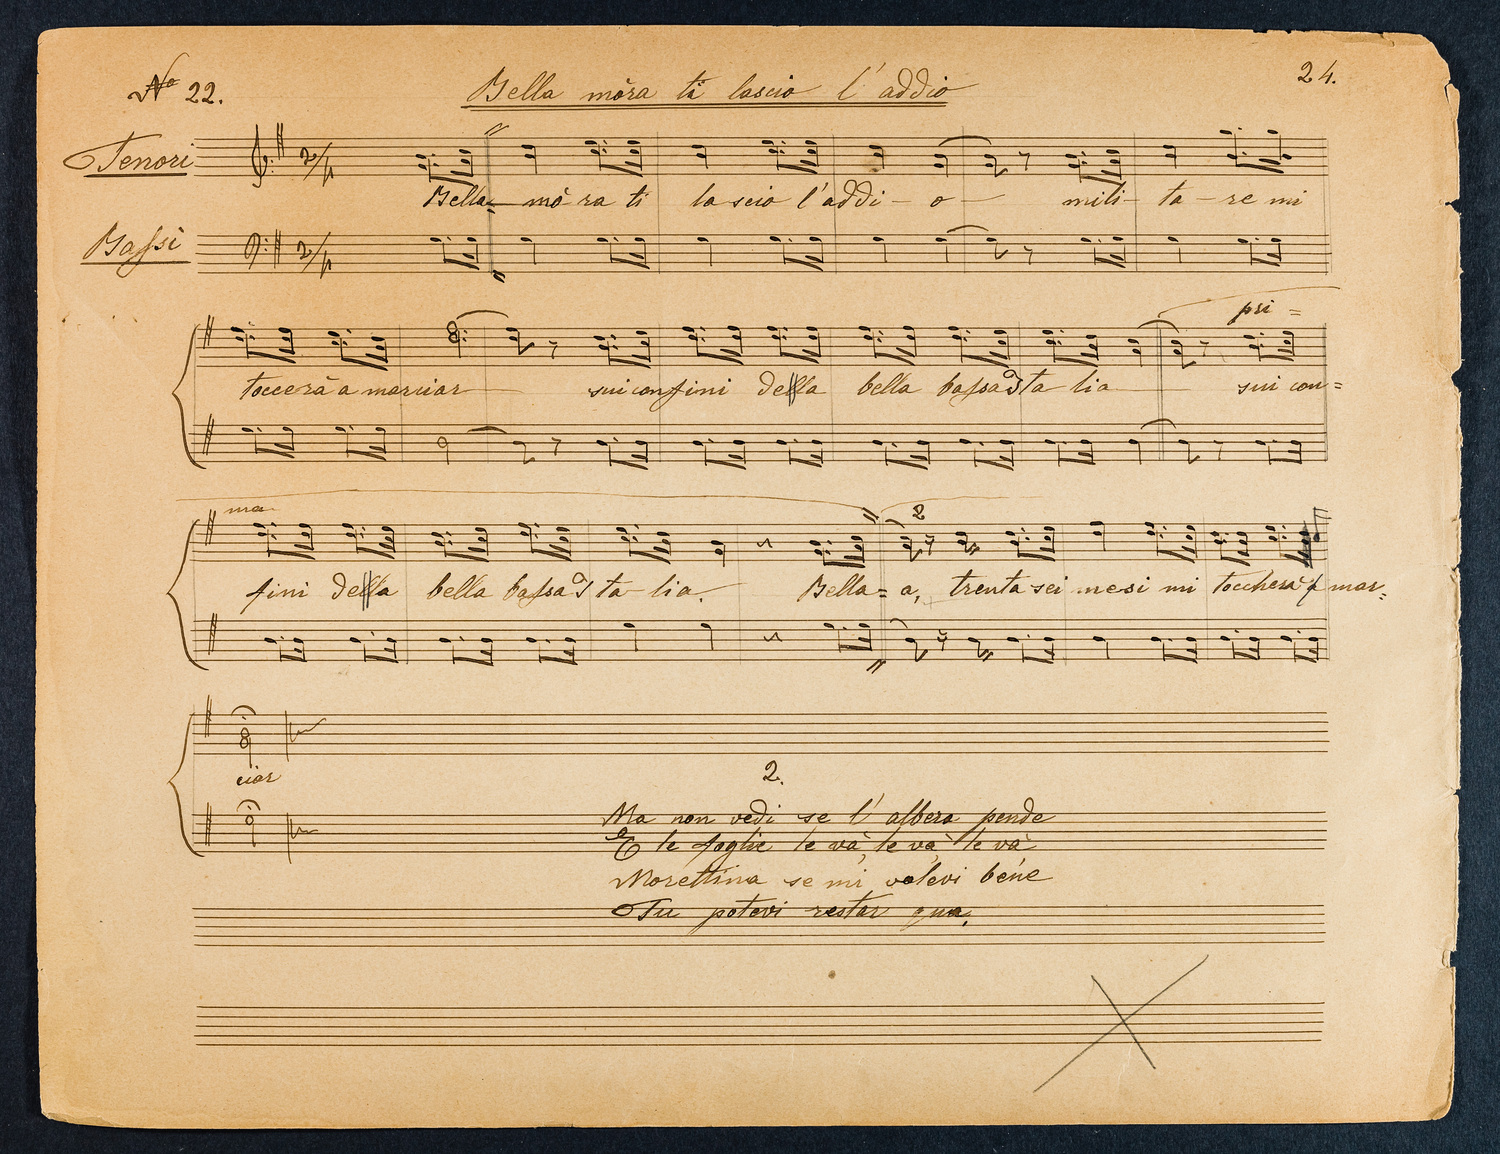 No 22.
Bella mòra ti lascio l'addio
24.
Tenori
2/4
Bella mò ra ti la scio l'addi - o - mili - ta - re mi
Bassi
2/4
pri =
toccerà a marciar sui confini della bella bassa Ita lia sui con =
ma
2
fini della bella bassa I ta - lia. Bella = a, trenta sei mesi mi toccherà a mar =
ciar
2.
Ma non vedi se l'albera pende
E le foglie le và le và le và
Morettina se mi volevi bene
Tu potevi restar qua.